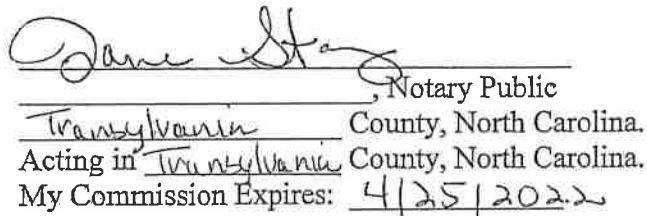 Jane
, Notary Public
Transylvania County, North Carolina.
Acting in Transylvania County, North Carolina.
My Commission Expires: 4|25|2022